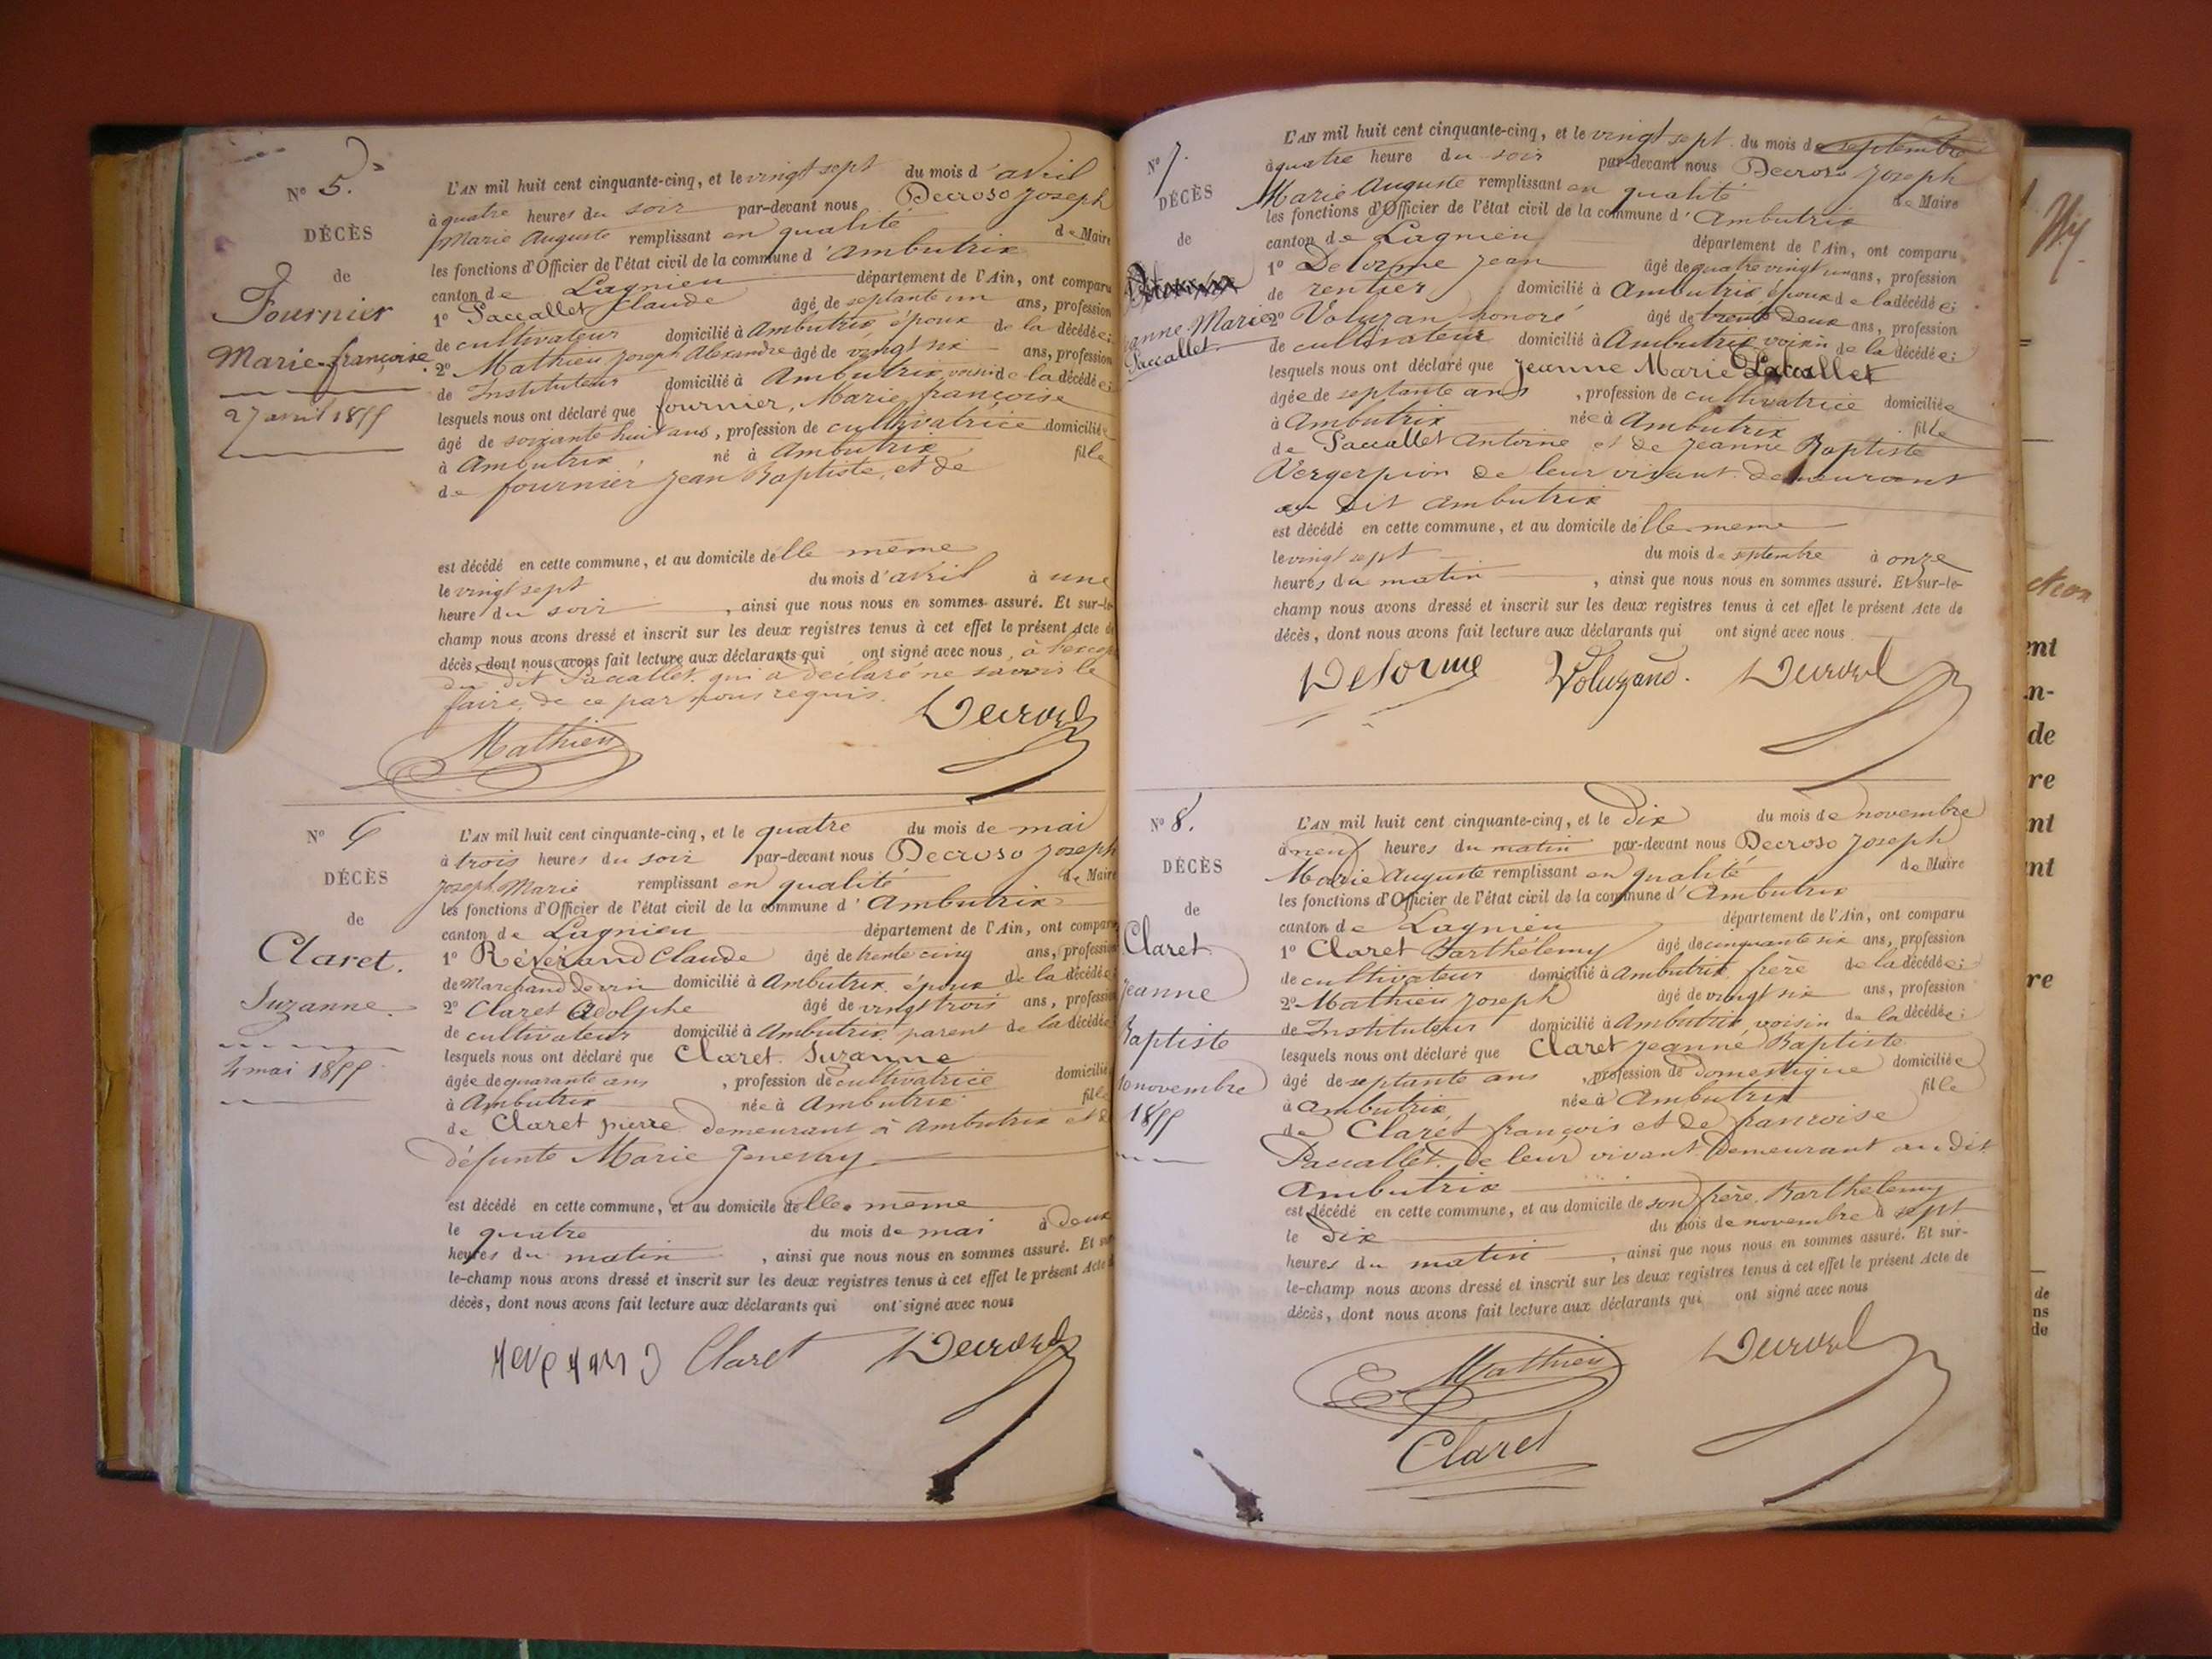 N° 5.
DÉCÈS
de
Fournier
Marie-françoise
27 avril 1855
L'AN mil huit cent cinquante-cinq, et le vingt sept du mois d'avril
à quatre heures du soir par-devant nous Decroso Joseph
Marie Auguste remplissant en qualité de Maire
les fonctions d'Officier de l'état civil de la commune d'Ambutrix
canton de Lagnieu département de l'Ain, ont comparu
1° Paccallet Claude âgé de septante un ans, profession
de cultivateur domicilié à Ambutrix époux de la décédée;
2° Mathieu Joseph Alexandre âgé de vingt six ans, profession
de Instituteur domicilié à Ambutrix, voisin de la décédée;
lesquels nous ont déclaré que fournier, Marie françoise
âgé de soixante huit ans, profession de cultivatrice domiciliée
à Ambutrix, né à Ambutrix fille
de fournier Jean Baptiste, et de
est décédé en cette commune, et au domicile delle même
le vingt sept du mois d'avril à une
heure du soir, ainsi que nous nous en sommes assuré. Et sur-le-
champ nous avons dressé et inscrit sur les deux registres tenus à cet effet le présent Acte de
décès, dont nous avons fait lecture aux déclarants qui ont signé avec nous, à l'excep
du dit Paccallet qui a déclaré ne savoir le
faire, de ce par nous requis.
Decroso
Mathieu
N° 6
DÉCÈS
de
Claret.
Suzanne.
4 mai 1855
L'AN mil huit cent cinquante-cinq, et le quatre du mois de mai
à trois heures du soir par-devant nous Decroso Joseph
Joseph Marie remplissant en qualité de Maire
les fonctions d'Officier de l'état civil de la commune d'Ambutrix
canton de Lagnieu département de l'Ain, ont comparu
1° Révérand Claude âgé de trente cinq ans, profession
de Marchand de vin domicilié à Ambutrix, époux de la décédée
2° Claret Adolphe âgé de vingt trois ans, profession
de cultivateur domicilié à Ambutrix parent de la décédée
lesquels nous ont déclaré que Claret. Suzanne
âgée de quarante ans, profession de cultivatrice domicilié
à Ambutrix née à Ambutrix fille
de Claret pierre demeurant à Ambutrix et de
défunte Marie Genevay
est décédé en cette commune, et au domicile delle même
le quatre du mois de mai à deux
heures du matin, ainsi que nous nous en sommes assuré. Et sur
le-champ nous avons dressé et inscrit sur les deux registres tenus à cet effet le présent Acte d
décès, dont nous avons fait lecture aux déclarants qui ont signé avec nous
Claret Decroso
N° 7.
DÉCÈS
de
Jeanne-Marie
Paccallet
L'AN mil huit cent cinquante-cinq, et le vingt sept du mois de septembre
à quatre heure du soir par-devant nous Decroso Joseph
Marie Auguste remplissant en qualité de Maire
les fonctions d'Officier de l'état civil de la commune d'Ambutrix
canton de Lagnieu département de l'Ain, ont comparu
1° Delorme Jean âgé de quatre vingt un ans, profession
de rentier domicilié à Ambutrix, époux de la décédée;
2° Voluzan honoré âgé de trente deux ans, profession
de cultivateur domicilié à Ambutrix voisin de la décédée;
lesquels nous ont déclaré que Jeanne Marie Paccallet
âgée de septante ans, profession de cultivatrice domiciliée
à Ambutrix née à Ambutrix fille
de Paccallet Antoine et de Jeanne Baptiste
Vergerpion de leur vivant demeurant
au dit Ambutrix
est décédé en cette commune, et au domicile delle-meme
le vingt sept du mois de septembre à onze
heures du matin, ainsi que nous nous en sommes assuré. Et sur-le-
champ nous avons dressé et inscrit sur les deux registres tenus à cet effet le présent Acte de
décès, dont nous avons fait lecture aux déclarants qui ont signé avec nous
Delorme Voluzand. Decroso
N° 8.
DÉCÈS
de
Claret
Jeanne
Baptiste
10 novembre
1855
L'AN mil huit cent cinquante-cinq, et le Dix du mois de novembre
à neuf heures du matin par-devant nous Decroso Joseph
Marie Auguste remplissant en qualité de Maire
les fonctions d'Officier de l'état civil de la commune d'Ambutrix
canton de Lagnieu département de l'Ain, ont comparu
1° Claret Barthélemy âgé de cinquante six ans, profession
de cultivateur domicilié à Ambutrix frère de la décédée;
2° Mathieu Joseph âgé de vingt six ans, profession
de Instituteur domicilié à Ambutrix, voisin de la décédée;
lesquels nous ont déclaré que Claret Jeanne Baptiste
âgé de septante ans, profession de Domestique domiciliée
à Ambutrix, née à Ambutrix fille
de Claret françois et de françoise
Paccallet. de leur vivant demeurant au dit
Ambutrix
est décédé en cette commune, et au domicile de son frère. Barthelemy
le dix du mois de novembre à sept
heures du matin, ainsi que nous nous en sommes assuré. Et sur-
le-champ nous avons dressé et inscrit sur les deux registres tenus à cet effet le présent Acte de
décès, dont nous avons fait lecture aux déclarants qui ont signé avec nous
Mathieu Decroso
Claret
ent
n-
de
re
nt
nt
re
de
ns
de